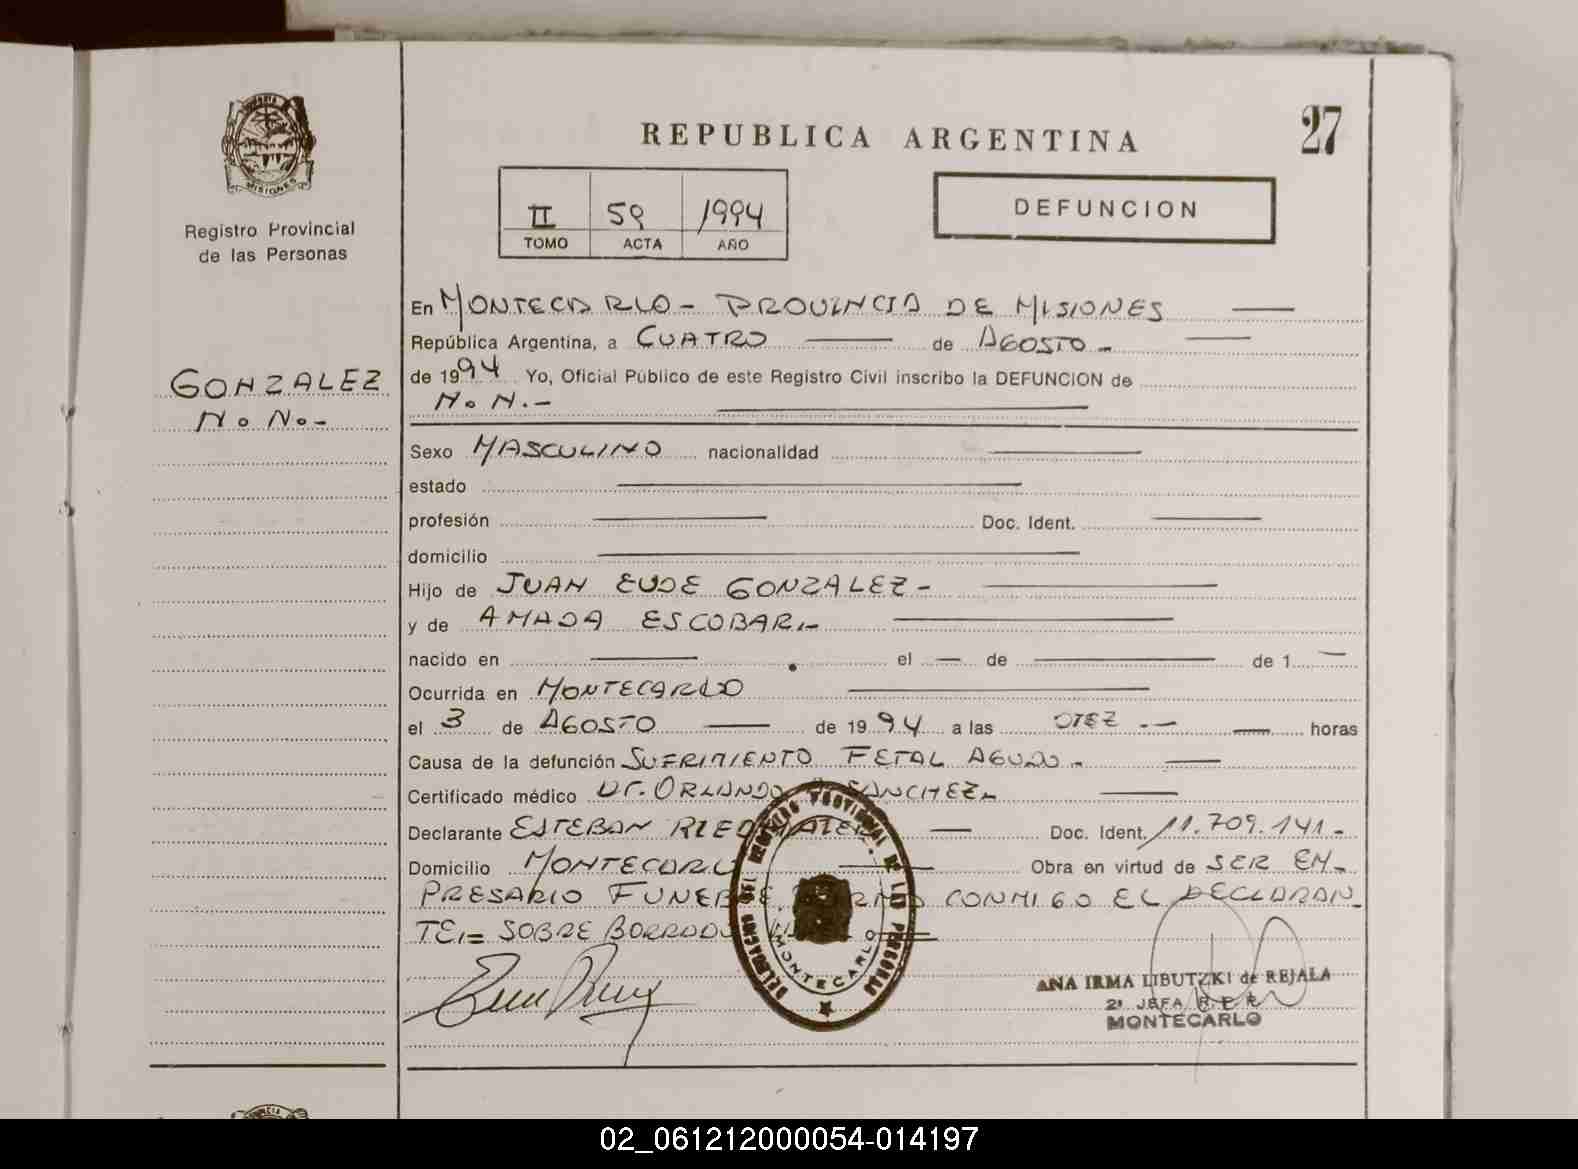 27
REPUBLICA ARGENTINA
MISIONES
Registro Provincial
de las Personas
II 59 1994
TOMO ACTA AÑO
DEFUNCION
GONZALEZ
N.N.-
En MONTECARLO - PROVINCIA DE MISIONES
República Argentina, a CUATRO de AGOSTO -
de 1994 Yo, Oficial Público de este Registro Civil inscribo la DEFUNCION de
N.N.-
Sexo MASCULINO nacionalidad
estado
profesión Doc. Ident.
domicilio
Hijo de JUAN EUDE GONZALEZ -
y de AMADA ESCOBAR.-
nacido en el — de de 1
Ocurrida en MONTECARLO
el 3 de AGOSTO de 1994 a las DIEZ .- horas
Causa de la defunción SUFRIMIENTO FETAL AGUDO -
Certificado médico Dr. ORLANDO SANCHEZ -
Declarante ESTEBAN Doc. Ident. 11.709.141.-
Domicilio MONTECARLO Obra en virtud de SER EM-
PRESARIO FUNEBRE FIRMA CONMIGO EL DECLARAN-
TE.= SOBRE BORRADO
DELEGACION DEL REGISTRO PROVINCIAL DE LAS PERSONAS
MONTECARLO
ANA IRMA LIBUTZKI de REJALA
2ª JEFA R.E.R.
MONTECARLO
02_061212000054-014197